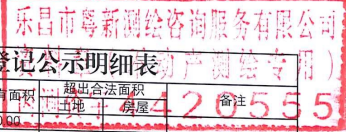 乐昌市粤新测绘咨询服务有限公司
产测绘专用）
登记公示明细表
有面积
超出合法面积
备注
土地
房屋
4420555
0.00